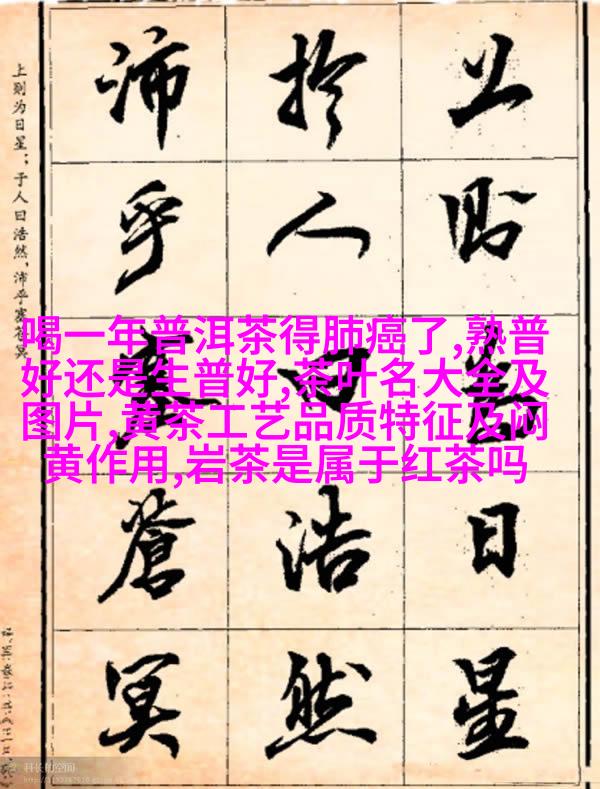 上則為日星
於人曰浩然
沛乎塞蒼冥
上则为日星；于人曰浩然，沛乎塞苍冥
喝一年普洱茶得肺癌了,熟普
好还是生普好,茶叶名大全及
图片,黄茶工艺品质特征及闷
黄作用,岩茶是属于红茶吗
科长的空间